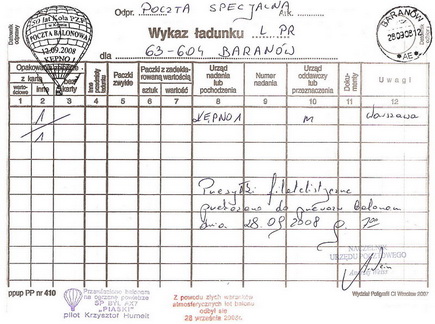 Odpr. POCZTA SPECJALNA
POCZTA BALONOWA
KĘPNO 1
Wykaz ładunku L PR
dla 63-604 BARANÓW
BARANÓW
28.09.08.12
AE
Dziennik odprawy
Opakowania zbiorcze
z kartą
z karty
Inne postacie ładunku
Paczki zwykłe
Paczki z zadeklarowaną wartością
sztuk
wartość
Urząd nadania lub pochodzenia
Numer nadania
Urząd oddawczy lub przeznaczenia
Dokumenty
Uwagi
1 2 3 4 5 6 7 8 9 10 11 12
1
1
KĘPNO 1
M
Warszawa
Przesyłki filatelistyczne
przekazano do przewozu balonem
dnia 28.09 2008 g. 7
NACZELNIK
URZĘDU POCZTOWEGO
ppup PP nr 410
Przeniesione balonem
na ogrzane powietrze
"PIASKI"
pilot Krzysztof Humeit
Z powodu złych warunków
atmosferycznych lot balonu
odbył się
28 września 2008r.
Wydział Poligrafii CI Wrocław 2007